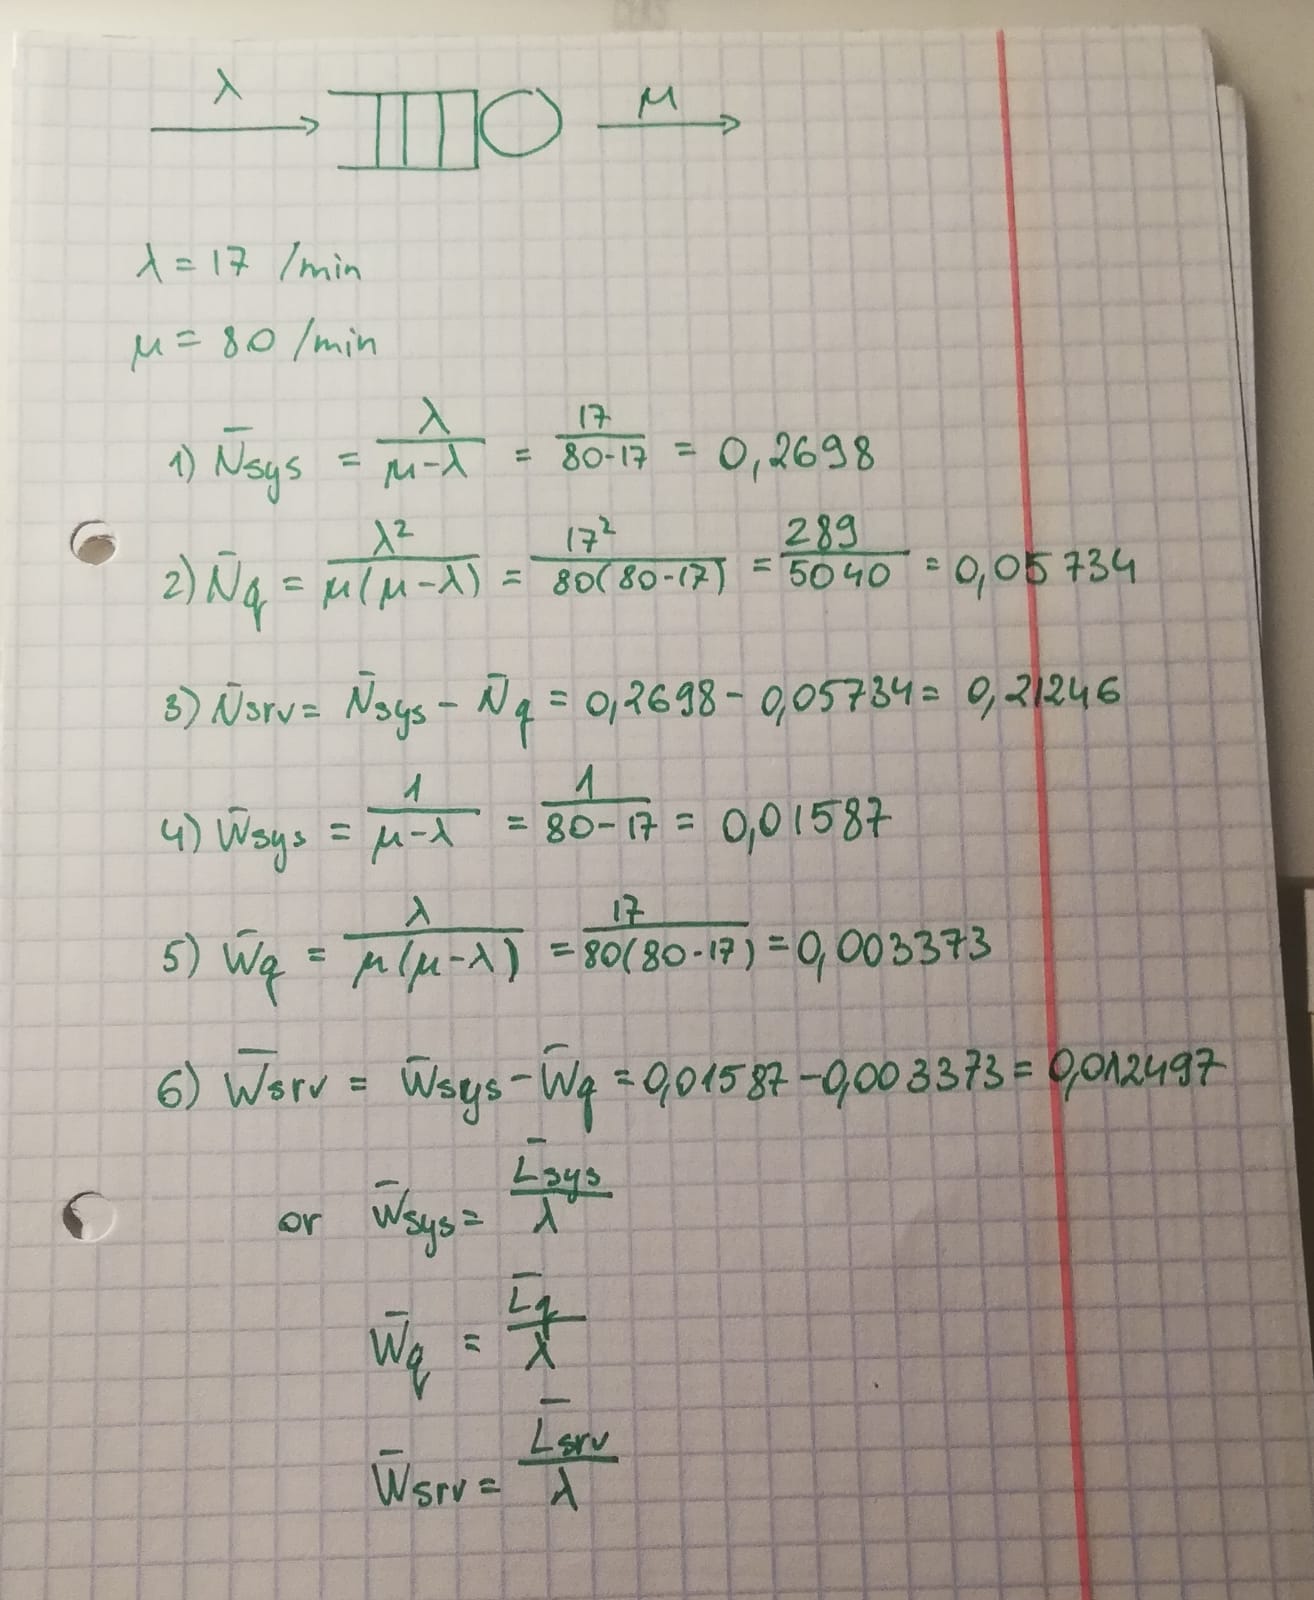 λ
μ
λ = 17 /min
μ = 80 /min
1) N̄sys = λ/(μ-λ) = 17/(80-17) = 0,2698
2) N̄q = λ²/(μ(μ-λ)) = 17²/(80(80-17)) = 289/5040 = 0,05734
3) N̄srv = N̄sys - N̄q = 0,2698 - 0,05734 = 0,21246
4) W̄sys = 1/(μ-λ) = 1/(80-17) = 0,01587
5) W̄q = λ/(μ(μ-λ)) = 17/(80(80-17)) = 0,003373
6) W̄srv = W̄sys - W̄q = 0,01587 - 0,003373 = 0,012497
or W̄sys = L̄sys/λ
W̄q = L̄q/λ
W̄srv = L̄srv/λ